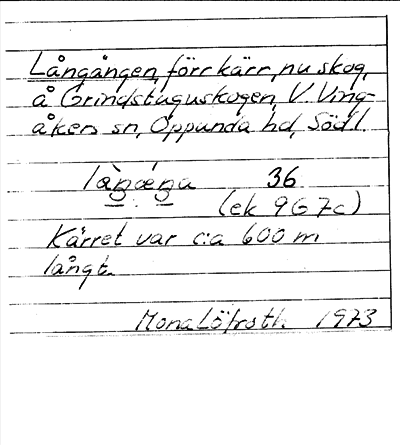 Långången, förr kärr, nu skog,
å Grindstuguskogen, V. Ving-
åkers sn, Oppunda hd, Södl.
làŋáŋa 36
(ek 9G7c)
Kärret var c:a 600 m
långt.
Mona Löfroth 1973